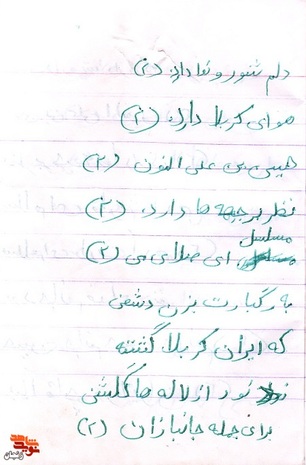 دلم شور و نوا دارد (۲)
هوای کربلا دارد (۲)
خمینی علی اکنون (۲)
نظر بر جبهه ها دارد (۲)
مسلسل
ای صلای من (۲)
به رگبارت بزن دشمن
که ایران کربلا گشته
نور از لاله ها گلشن
برای جمله جانبازان (۲)